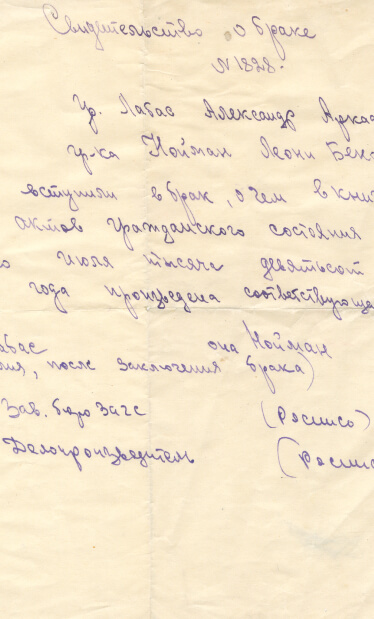 Свидетельство о браке
№1828.
Гр. Лабас Александр Аркад
гр-ка Нойман Леони Бек
вступили в брак, о чем в кни
актов гражданского состояния
июля тысяча девятьсот
года произведена соответствующа
абас она Нойман
ия, после заключения брака)
Зав. бюро Загс (Роспись)
Делопроизводитель (Роспис